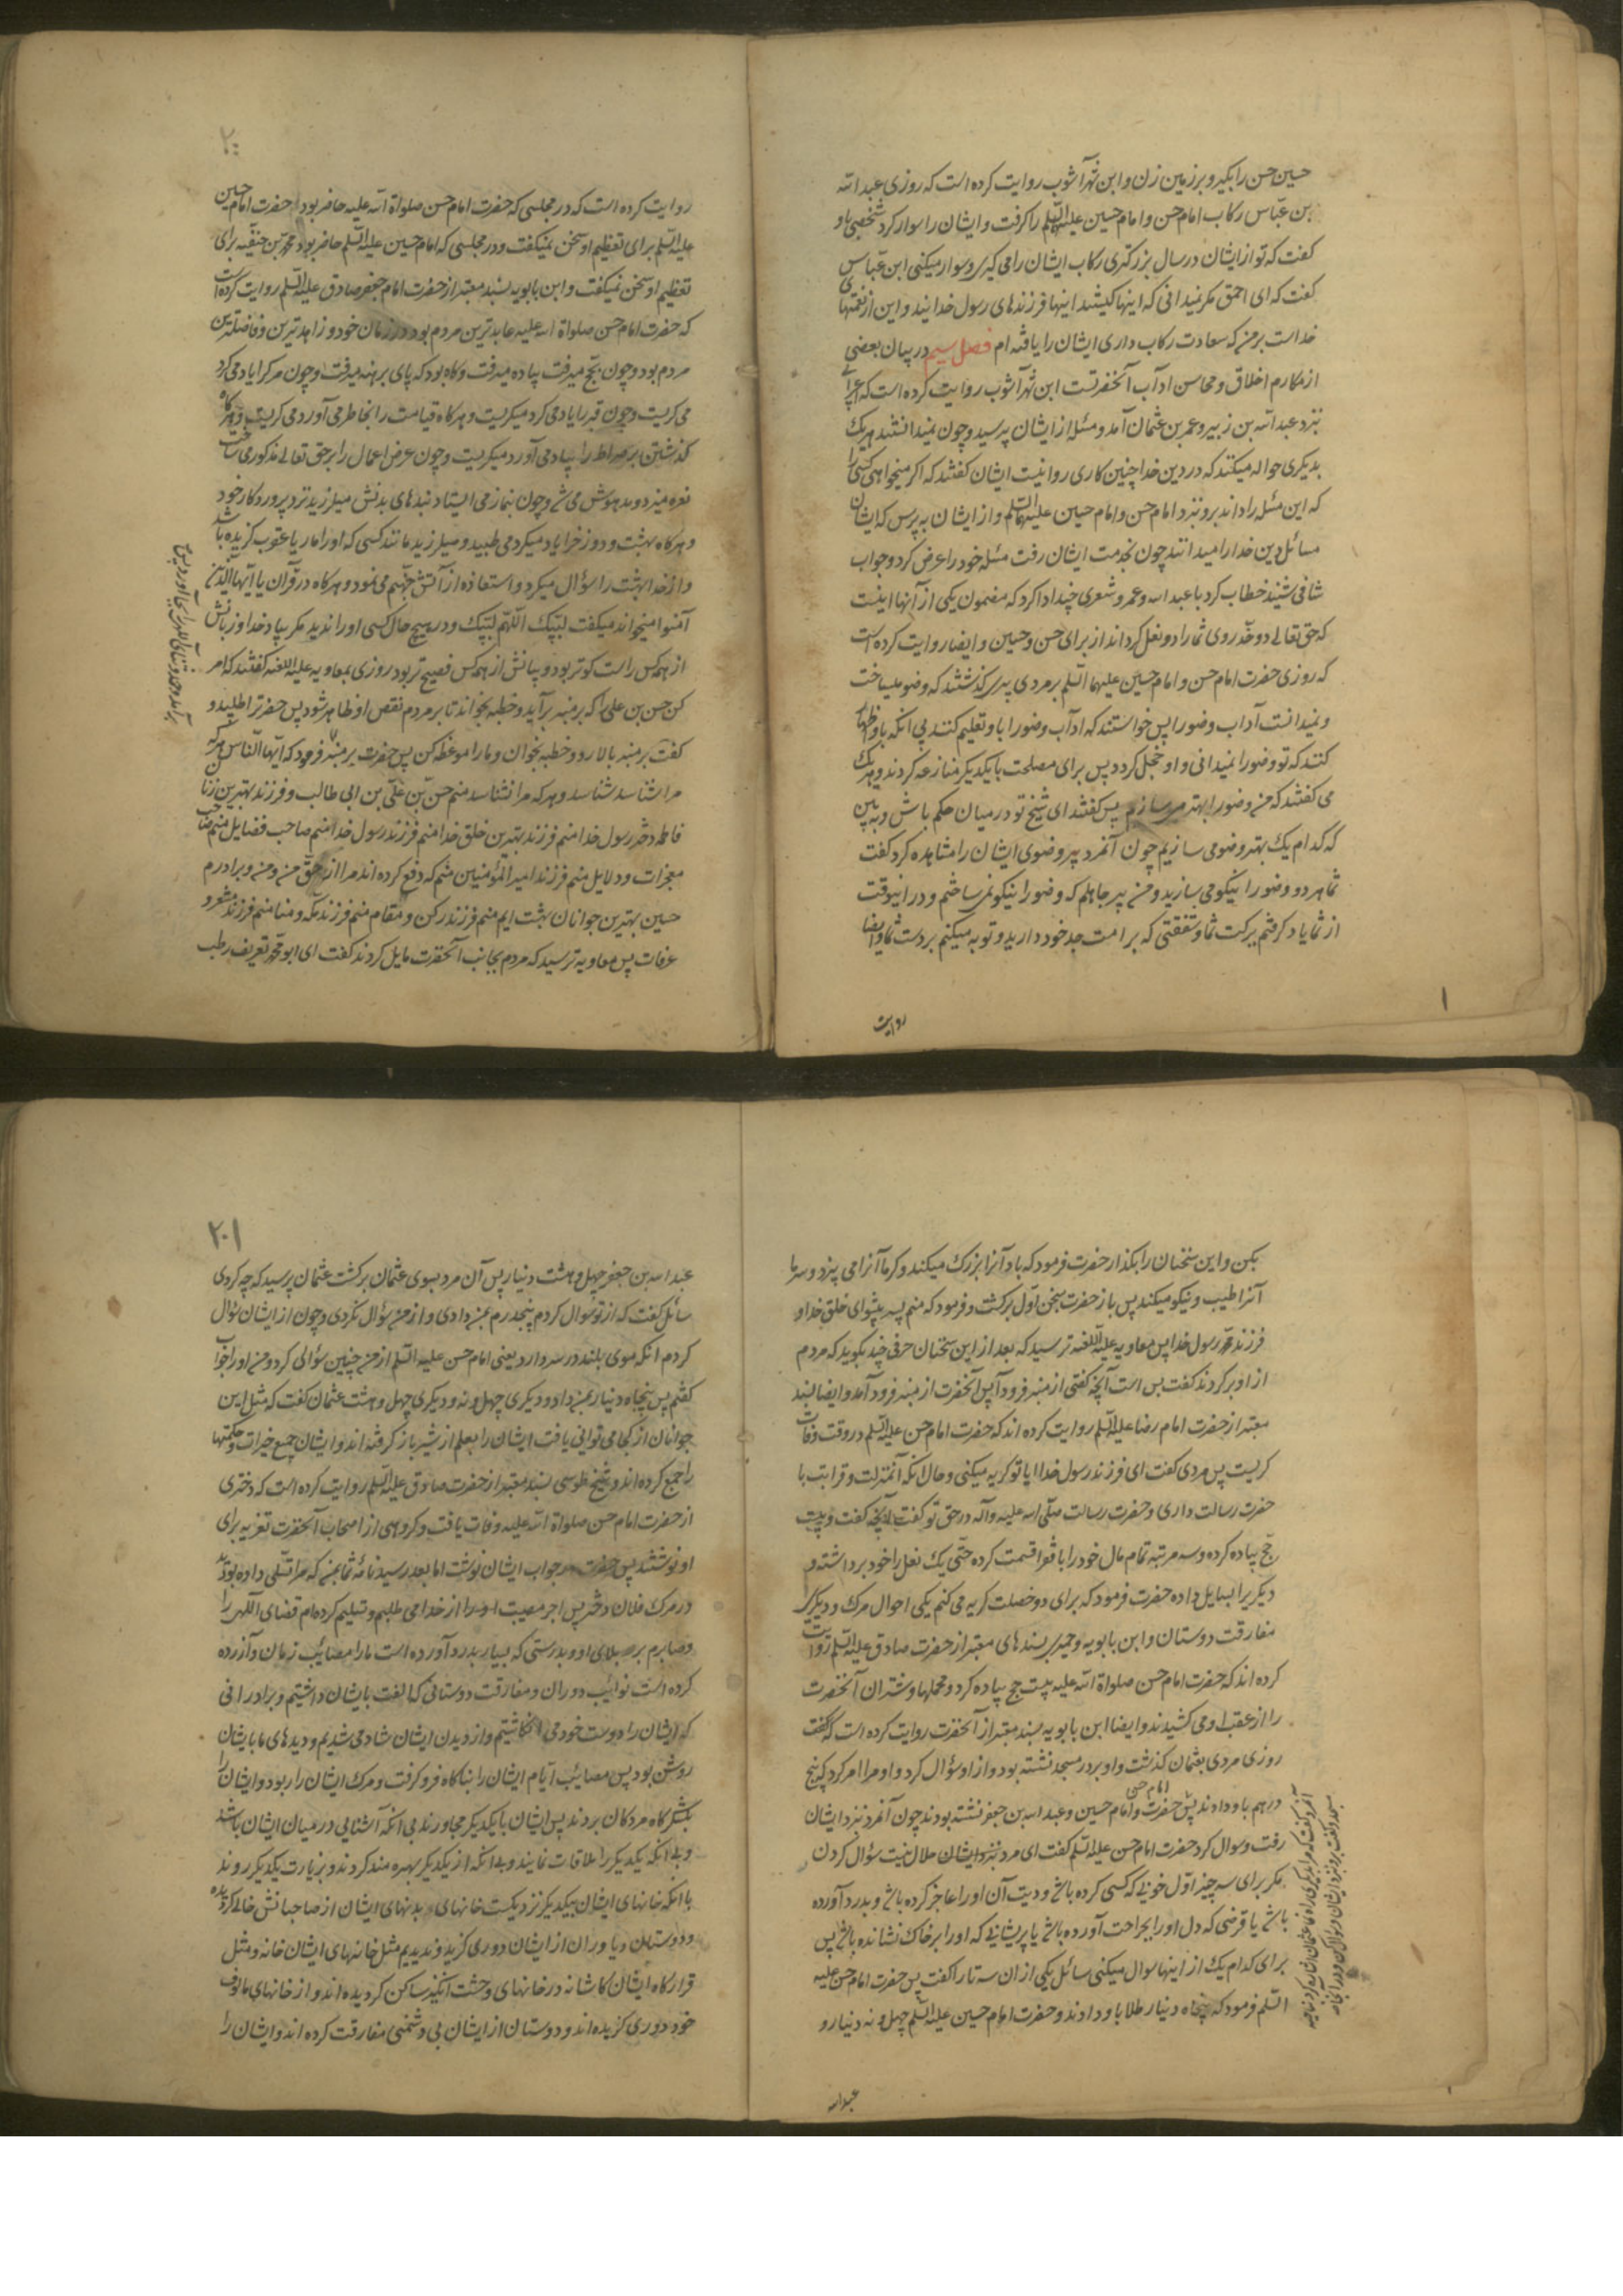 حسین حسن را بگیر و بر زمین زن و ابن شهرآشوب روایت کرده است که روزی عبد الله
بن عبّاس رکاب امام حسن و امام حسین علیهما السّلم را کرفت و ایشان را سوار کرد شخصی باو
کفت که تو از ایشان در سال بزرکتری رکاب ایشان را می کیری و سوار میکنی ابن عبّاس
کفت که ای احمق مکر نمیدانی که اینها کیستند اینها فرزندهای رسول خدایند و این از نعمتهای
خداست بر من که سعادت رکاب داری ایشان را یافته ام فصل سیم در بیان بعضی
از مکارم اخلاق و محاسن آداب آنحضرتست ابن شهرآشوب روایت کرده است که اعرابی
نزد عبد الله بن زبیر و عمرو بن عثمان آمد و مسئله از ایشان پرسید و چون نمیدانستند هر یک
بدیکری حواله میکنند که در دین خدا چنین کاری روا نیست ایشان کفتند که اکر میخواهی کسی را
که این مسئله را داند برو نزد امام حسن و امام حسین علیهما السّلم و از ایشان به پرس که ایشان
مسائل دین خدا را میدانند چون بخدمت ایشان رفت مسئله خود را عرض کرد و جواب
شافی شنید خطاب کرد با عبد الله و عمرو و شعری چند ادا کرد که مضمون یکی از آنها اینست
که حق تعالی دو خدّ روی شما را دو نعل کرداند از برای حسن و حسین و ایضا روایت کرده است
که روزی حضرت امام حسن و امام حسین علیهما السّلم بر مردی پیری کذشتند که وضو میساخت
و نمیدانست آداب وضو را پس خواستند که آداب وضو را باو تعلیم کنند بی انکه باو اظهار
کنند که تو وضو را نمیدانی و او خجل کردد پس برای مصلحت با یکدیکر منازعه کردند و هر یک
می کفتند که من وضو را بهتر میسازم پس کفتند ای شیخ تو در میان حکم باش و به بین
که کدام یک بهتر وضو می سازیم چون آنمرد پیر وضوی ایشان را مشاهده کرد کفت
شما هر دو وضو را نیکو می سازید و من پیر جاهلم که وضو را نیکو نمی ساختم و در اینوقت
از شما یاد کرفتم ببرکت شما و شفقتی که بر امت جد خود دارید و توبه میکنم بر دست شما و ایضا
روایت
روایت کرده است که در مجلسی که حضرت امام حسن صلواة الله علیه حاضر بود حضرت امام حسین
علیه السّلم برای تعظیم او سخن نمیکفت و در مجلسی که امام حسین علیه السّلم حاضر بود محمّد بن حنفیّه برای
تعظیم او سخن نمیکفت و ابن بابویه بسند معتبر از حضرت امام جعفر صادق علیه السّلم روایت کرده است
که حضرت امام حسن صلواة الله علیه عابدترین مردم بود در زمان خود و زاهدترین و فاضلترین
مردم بود و چون بحج میرفت پیاده میرفت و کاه بود که پای برهنه میرفت و چون مرک را یاد می کرد
می کریست و چون قبر را یاد می کرد میکریست و هر کاه قیامت را بخاطر می آورد می کریست و هر کاه
کذشتن بر صراط را بیاد می آورد میکریست و چون عرض اعمال را بر حق تعالی مذکور می ساخت
نعره میزد و مدهوش می شد و چون بنماز می ایستاد بندهای بدنش میلرزید نزد پروردکار خود
و هر کاه بهشت و دوزخ را یاد میکرد می طپید و میلرزید مانند کسی که او را مار یا عقرب کزیده باشد
و از خدا بهشت را سؤال میکرد و استعاذه از آتش جهنّم می نمود و هر کاه در قرآن یا ایّها الّذین
آمنوا میخواند میکفت لبّیک اللّهمّ لبّیک و در هیچ حال کسی او را ندید مکر بیاد خدا و زبانش
از همه کس راست کوتر بود و بیانش از همه کس فصیح تر بود روزی بمعاویه علیه اللعنه کفتند که امر
کن حسن بن علی را که بر منبر برآید و خطبه بخواند تا بر مردم نقص او ظاهر شود پس حضرت را طلبید و
کفت بر منبر بالا رو و خطبه بخوان و ما را موعظه کن پس حضرت بر منبر و فرمود که ایّها النّاس هر که
مرا شناسد شناسد و هر که مرا نشناسد منم حسن بن علیّ بن ابی طالب و فرزند بهترین زنان
فاطمه دختر رسول خدا منم فرزند بهترین خلق خدا منم فرزند رسول خدا منم صاحب فضایل منم صاحب
معجزات و دلایل منم فرزند امیر المؤمنین منم که دفع کرده اند مرا از حقّ من و من و برادرم
حسین بهترین جوانان بهشت ایم منم فرزند رکن و مقام منم فرزند مکّه و منا منم فرزند مشعر و
عرفات پس معاویه ترسید که مردم بجانب آنحضرت مایل کردند کفت ای ابو محمّد تعریف رطب
بکن و این سخنان را بکذار حضرت فرمود که باد آنرا بزرک میکند و کرما آنرا می پزد و سرما
آنرا طیب و نیکو میکند پس باز حضرت بسخن اوّل برکشت و فرمود که منم پسر پیشوای خلق خدا و
فرزند محمّد رسول خدا پس معاویه علیه اللعنه ترسید که بعد از این سخنان حرفی چند بکوید که مردم
از او برکردند کفت بس است آنچه کفتی از منبر فرود آ پس آنحضرت از منبر فرود آمد و ایضا بسند
معتبر از حضرت امام رضا علیه السّلم روایت کرده اند که حضرت امام حسن علیه السّلم در وقت وفات
کریست پس مردی کفت ای فرزند رسول خدا ایا تو کریه میکنی و حال انکه آنمنزلت و قرابت با
حضرت رسالت داری و حضرت رسالت صلّی الله علیه و آله در حق تو کفت آنچه کفت و بیست
حج پیاده کرده و سه مرتبه تمام مال خود را با فقرا قسمت کرده حتّی یک نعل را خود برداشته و
دیکر را بسایل داده حضرت فرمود که برای دو خصلت کریه می کنم یکی احوال مرک و دیکری
مفارقت دوستان و ابن بابویه و حمیری بسندهای معتبر از حضرت صادق علیه السّلم روایت
کرده اند که حضرت امام حسن صلواة الله علیه بیست حج پیاده کرد و محملها و شتران آنحضرت
را از عقب او می کشیدند و ایضا ابن بابویه بسند معتبر از آنحضرت روایت کرده است که کفت
روزی مردی بعثمان کذشت و او بر در مسجد نشسته بود و از او سؤال کرد و او مرا امر کرد که پنج
درهم باو دادند پس حضرت امام حسن و امام حسین و عبد الله بن جعفر نشسته بودند چون آنمرد نزد ایشان
رفت و سوال کرد حضرت امام حسن علیه السّلم کفت ای مرد نزد ایشان حلال نیست سؤال کردن
مکر برای سه چیز اوّل خونی که کسی کرده باشد و دیت آن او را عاجز کرده باشد و بدرد آورده
باشد یا قرضی که دل او را بجراحت آورده باشد یا پریشانی که او را بر خاک نشانده باشد پس
برای کدام یک از اینها سوال میکنی سائل یکی از ان سه تا را کفت پس حضرت امام حسن علیه
السّلم فرمود که پنجاه دینار طلا باو دادند و حضرت امام حسین علیه السّلم چهل و نه دینار و
عبد الله
۲۰۱
عبد الله بن جعفر چهل و هشت دینار پس آن مرد بسوی عثمان برکشت عثمان پرسید که چه کردی
سائل کفت که از تو سؤال کردم پنجدرم بمن دادی و از من سؤال نکردی و چون از ایشان سؤال
کردم انکه موی بلند در سر دارد یعنی امام حسن علیه السّلم از من چنین سؤالی کرد و من او را جواب
کفتم پس پنجاه دینار بمن داد و دیکری چهل و نه و دیکری چهل و هشت عثمان کفت که مثل این
جوانان از کجا می توانی یافت ایشان را بعلم از شیر باز کرفته اند و ایشان جمیع خیرات و حکمتها
را جمع کرده اند و شیخ طوسی بسند معتبر از حضرت صادق علیه السّلم روایت کرده است که دختری
از حضرت امام حسن صلواة الله علیه وفات یافت و کروهی از اصحاب آنحضرت تعزیه برای
او نوشتند پس حضرت در جواب ایشان نوشت اما بعد رسید نامهٔ شما بمن که مرا تسلّی داده بودید
در مرک فلان دختر پس اجر مصیبت او را از خدا می طلبم و تسلیم کرده ام قضای الهی را
و صابرم بر بلای او و بدرستی که بسیار بدرد آورده است ما را مصائب زمان و آزرده
کرده است نوائب دوران و مفارقت دوستانی که الفت بایشان داشتیم و برادرانی
که ایشان را دوست خود می انکاشتیم و از دیدن ایشان شاد می شدیم و دیدهای ما بایشان
روشن بود پس مصائب ایّام ایشان را بناکاه فرو کرفت و مرک ایشان را ربود و ایشان را
بلشکرکاه مردکان بردند پس ایشان با یکدیکر مجاورند بی انکه آشنایی در میان ایشان باشد
و بی انکه یکدیکر را ملاقات نمایند و بی انکه از یکدیکر بهره مند کردند و بزیارت یکدیکر روند
با انکه خانهای ایشان بیکدیکر نزدیکست خانهای بدنهای ایشان از صاحبانش خالی کردیده
و دوستان و یاوران از ایشان دوری کزیدند و ندیدیم مثل خانهای ایشان خانه و مثل
قرارکاه ایشان کاشانه در خانهای وحشت انکیز ساکن کردیده اند و از خانهای مالوف
خود دوری کزیده اند و دوستان از ایشان بی دشمنی مفارقت کرده اند و ایشان را